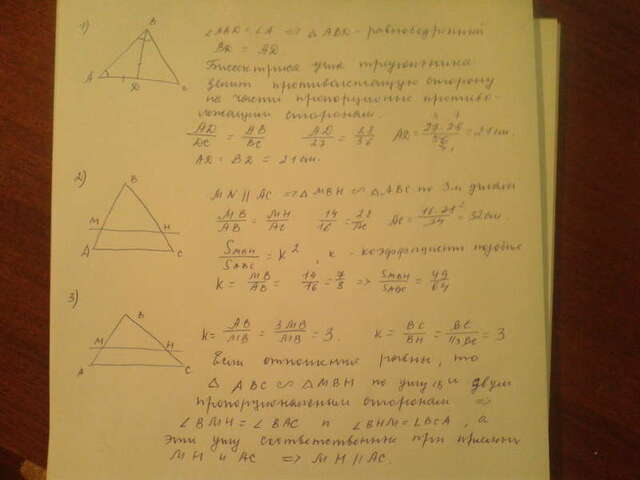 1)
B
A
D
∠ABD = ∠A => △ABD - равнобедренный
BD = AD
Биссектриса угла треугольника
делит противолежащую сторону
на части пропорционные противо-
лежащим сторонам.
AD/DC = AB/BC AD/27 = 28/36 AD = 27·28/36 = 21 см.
AD = BD = 21 см.
2)
B
M
H
A
C
MN || AC => △MBH ∽ △ABC по 3м углам
MB/AB = MH/AC 14/16 = 28/AC = 32 см.
S MBH/S ABC = k², k - коэффициент
k = MB/AB = 14/16 = 7/8 => S MBH/S ABC = 49/64
3)
B
M
H
A
C
k = AB/MB = 3MB/MB = 3. k = BC/BH = BC/1/3 BC = 3
Если отношения равны, то
△ ABC ∽ △MBH по углу B и двум
пропорциональным сторонам =>
∠BMH = ∠BAC и ∠BHM = ∠BCA, а
эти углы соответственные при прямых
MH и AC => MH || AC.